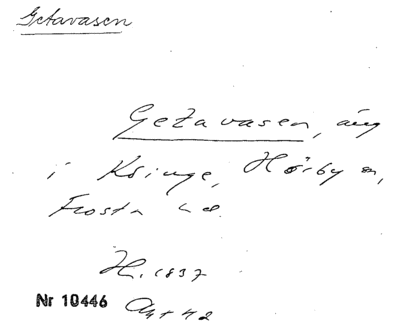 Getavasen
Getavasen, äng
i Ksinge, Hörby sn,
Frosta hd.
H. 1837
Nr 10446